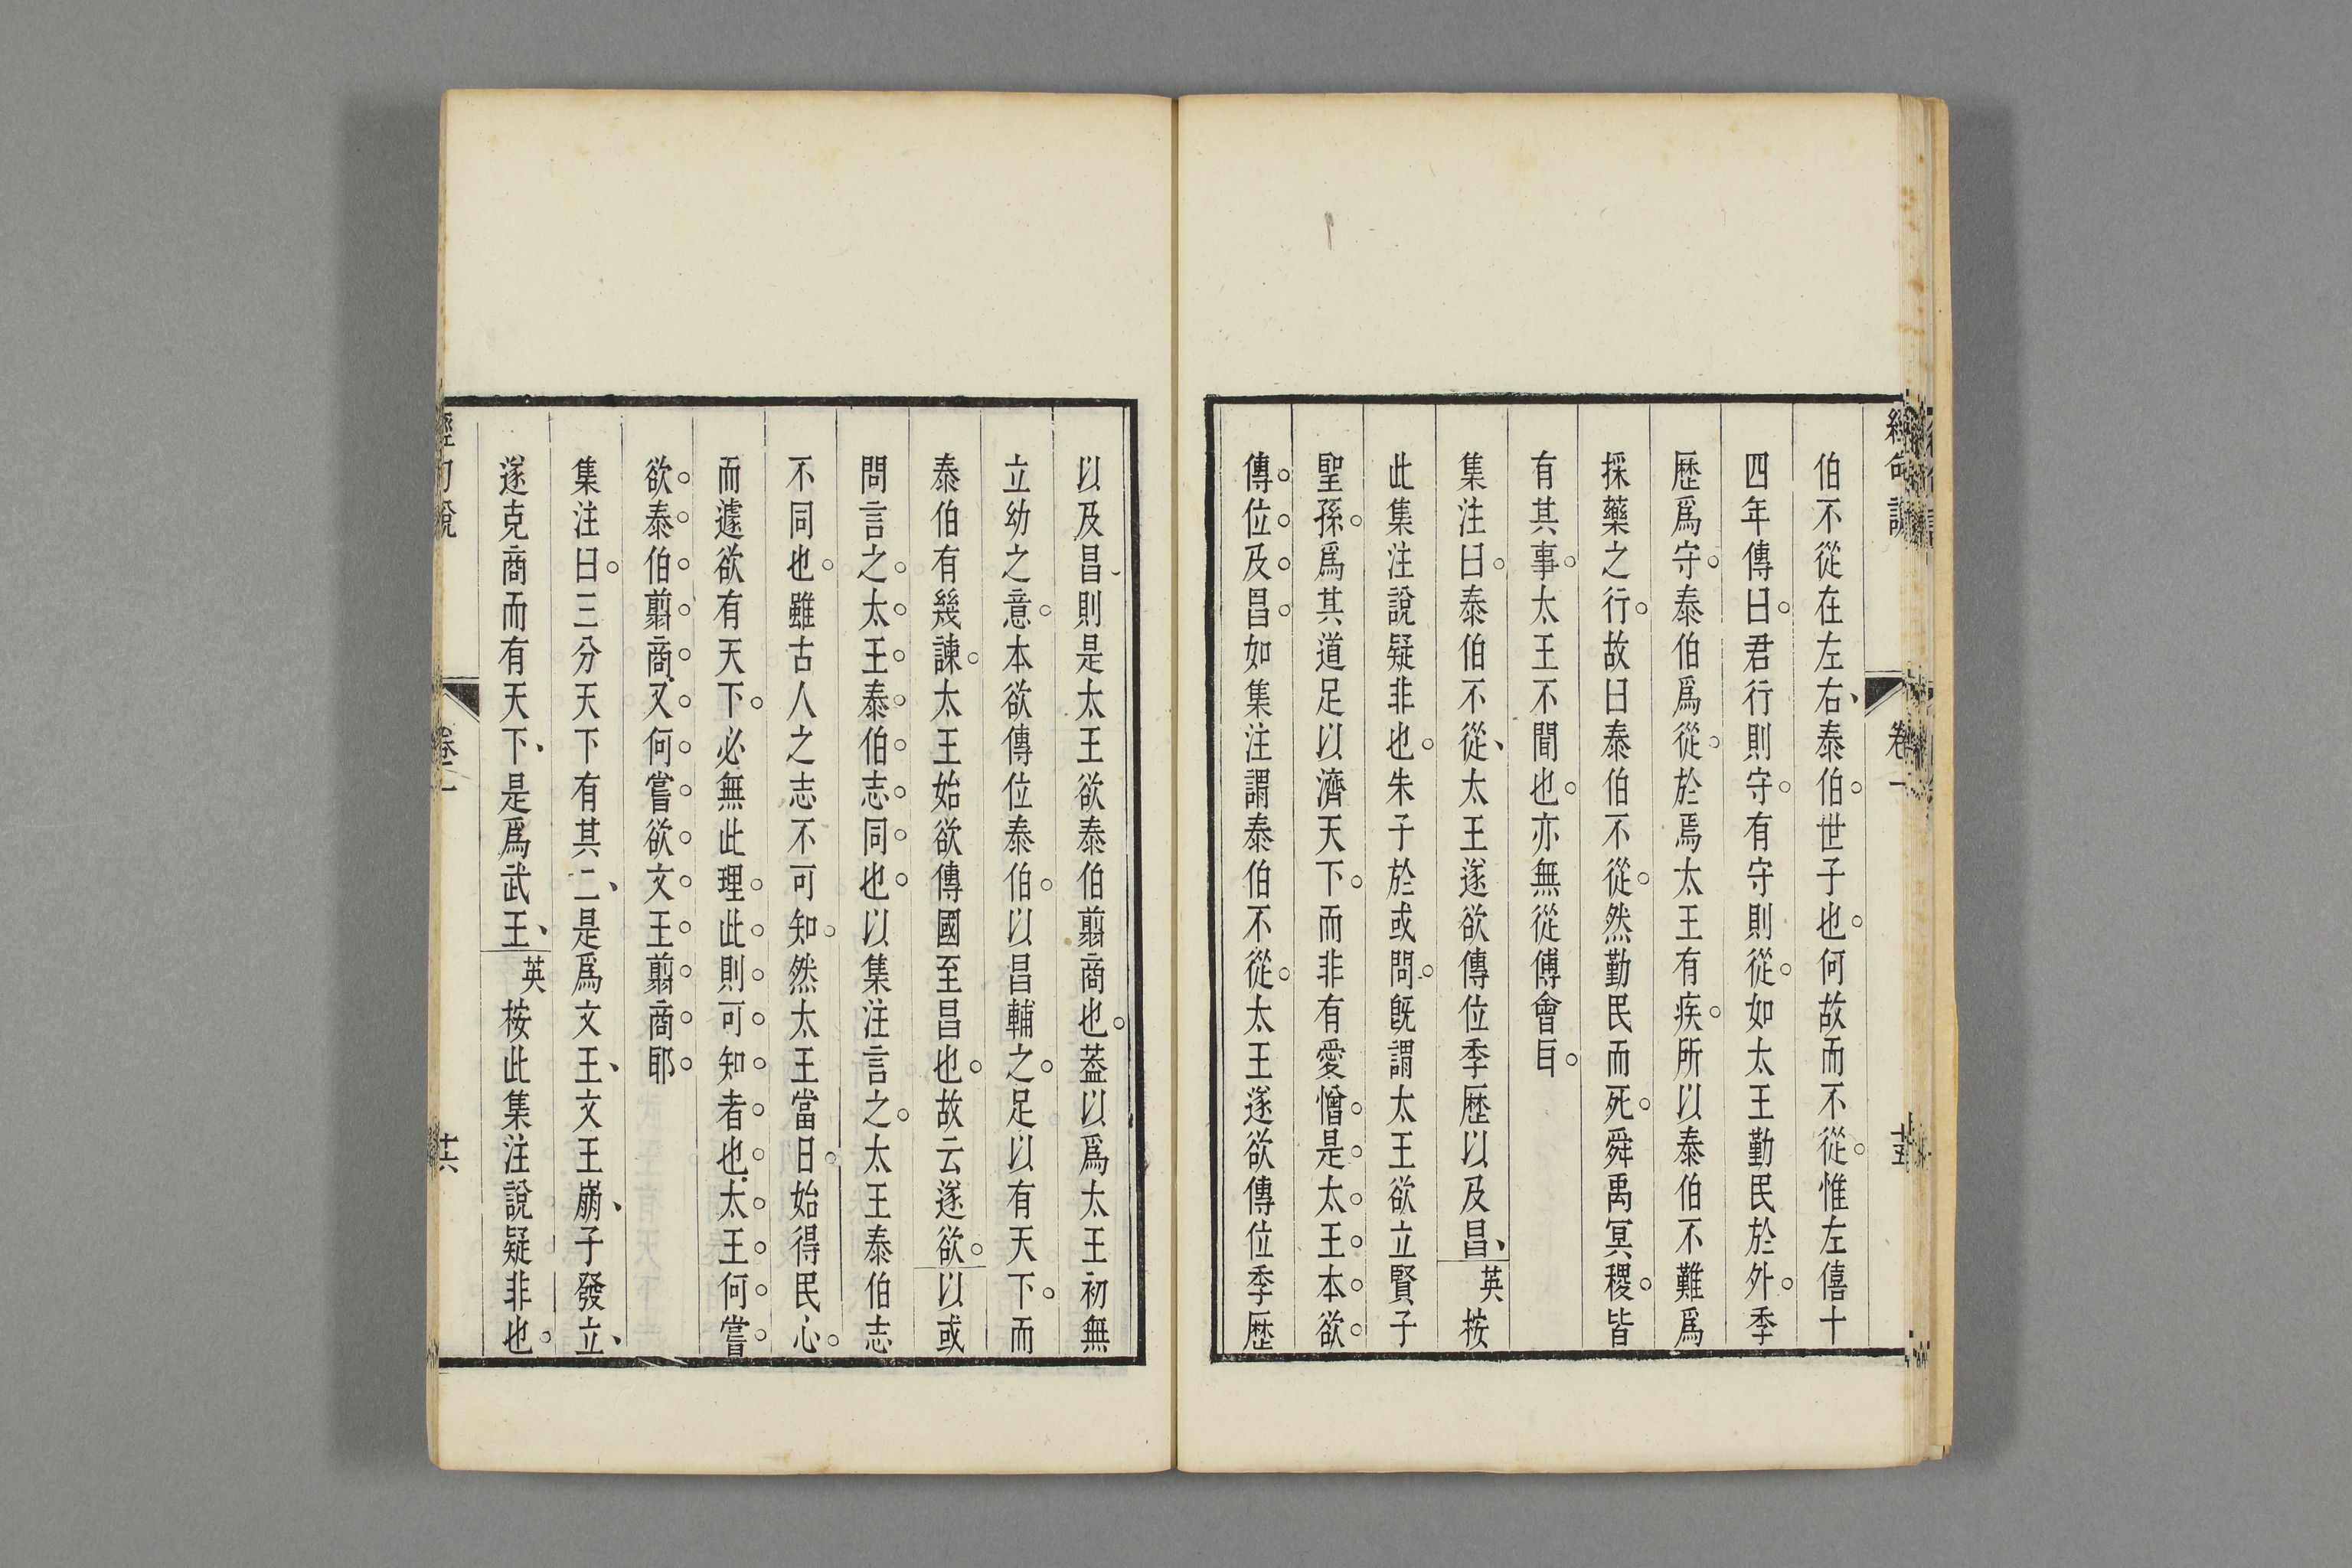 伯不從在左右、泰伯。世子也。何故而不從。惟左僖十
四年傳曰。君行則守。有守則從。如太王勤民於外。季
歷爲守。泰伯爲從。於焉太王有疾。所以泰伯不難爲
採藥之行。故曰泰伯不從。然勤民而死。舜禹冥稷。皆
有其事。太王不閒也。亦無從傅會㠯。
集注曰。泰伯不從、太王遂欲傳位季歷以及昌、英按
此集注說疑非也。朱子於或問。旣謂太王欲立賢子
聖孫。爲其道足以濟天下。而非有愛憎。是。太。王。本。欲。
傳。位。及。昌。如集注謂泰伯不從。太王遂欲傳位季歷
以及昌、則是太王欲泰伯翦商也。蓋以爲太王初無
立幼之意。本欲傳位泰伯。以昌輔之。足以有天下。而
泰伯有幾諫。太王始欲傳國至昌也。故云遂欲。以或
問言之。太。王。泰。伯。志。同。也。以集注言之。太王泰伯志
不同也。雖古人之志不可知。然太王當日。始得民心。
而遽欲有天下。必無此理。此。則。可。知。者。也。太。王。何。嘗。
欲。泰。伯。翦。商。又。何。嘗。欲。文。王。翦。商。耶。
集注曰。三分天下有其二、是爲文王、文王崩、子發立、
遂克商而有天下、是爲武王、英按此集注說疑非也。
卷一